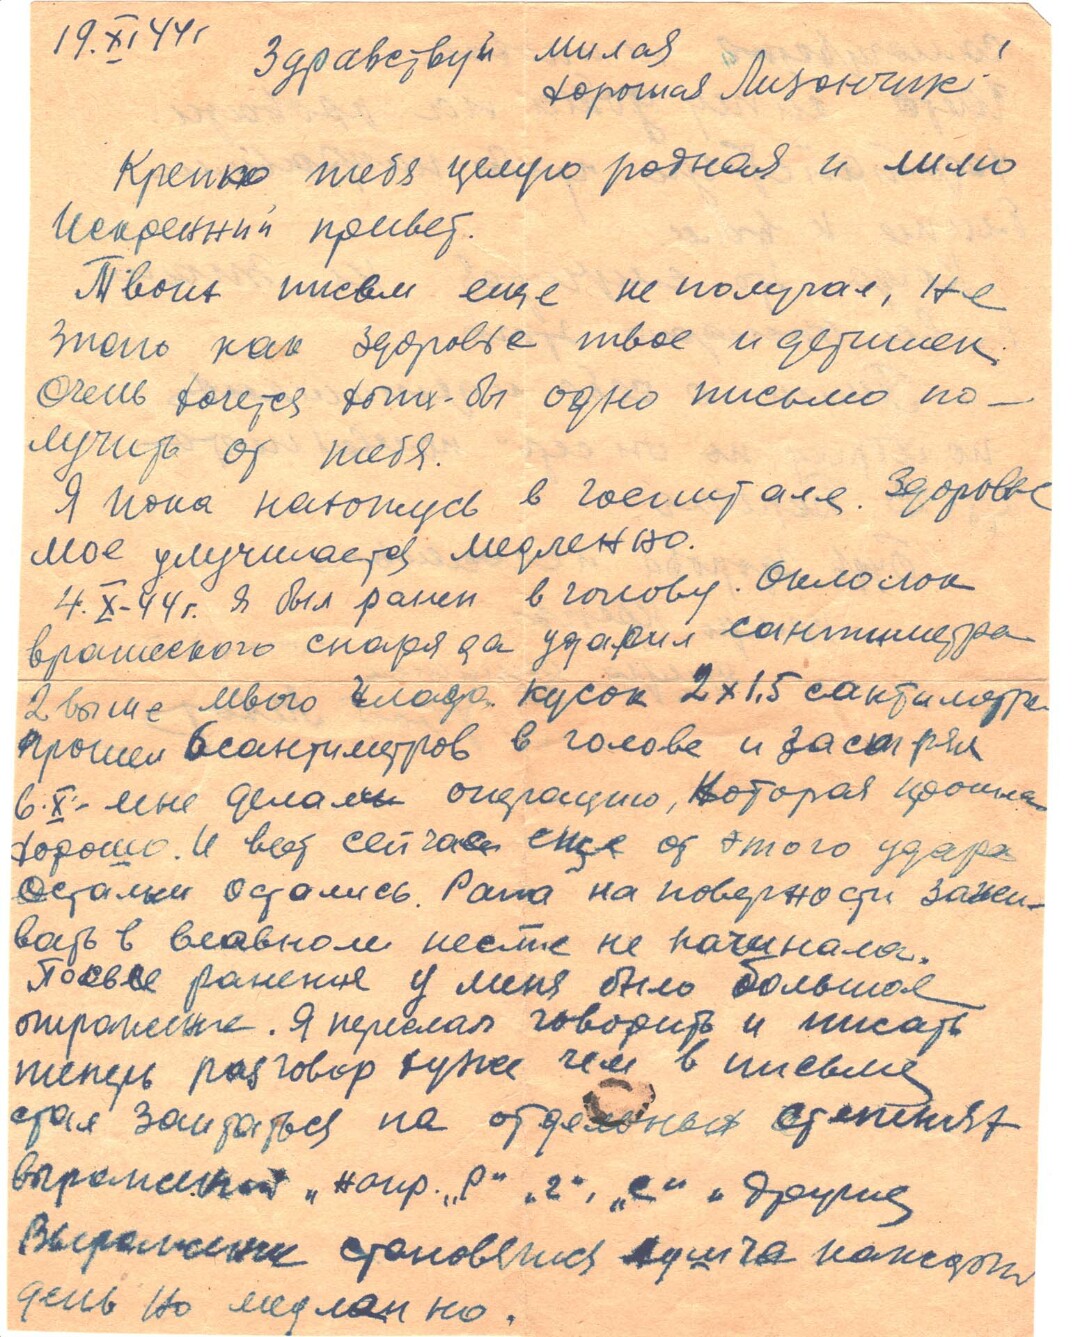 19.XI 44г
Здравствуй милая
хорошая Лизончик!
Крепко тебя целую родная и шлю
Искренний привет.
Твоих писем еще не получал, не
знаю как здоровье твое и детишек.
Очень хочется хотя-бы одно письмо по-
лучить от тебя.
Я пока нахожусь в госпитале. Здоровье
мое улучшается медленно.
4.X-44г. я был ранен в голову. Околок
вражеского снаряда ударил сантиметра
2 выше моего глаза. кусок 2х1,5 сантиметра
прошел 6 сантиметров в голове и застрял
6.X.- мне делали операцию, которая прошла
хорошо. И вот сейчас еще от этого удара
остатки остались. Рана на поверхности зажи-
вать в главном месте не начинала.
После ранения у меня было большое
отражение. Я перестал говорить и писать
теперь разговор хуже чем в письме
стал заитаться на отдельных
выражений „напр. „р" „г", „с" и другие
Выражение становятся лучша каждый
день но медленно.